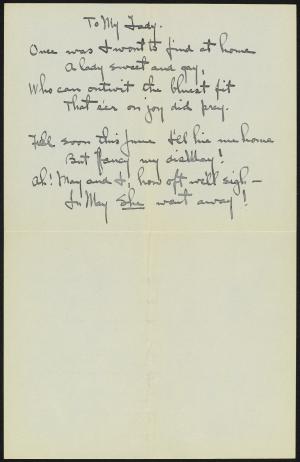 To My Lady.
Once was I wont to find at home
A lady sweet and gay,
Who can outwit the bluest fit
That e'er on joy did prey.
Full soon this June I'll hie me home
But fancy my dismay!
Ah! May and I, how oft we'll sigh –
In May She went away!